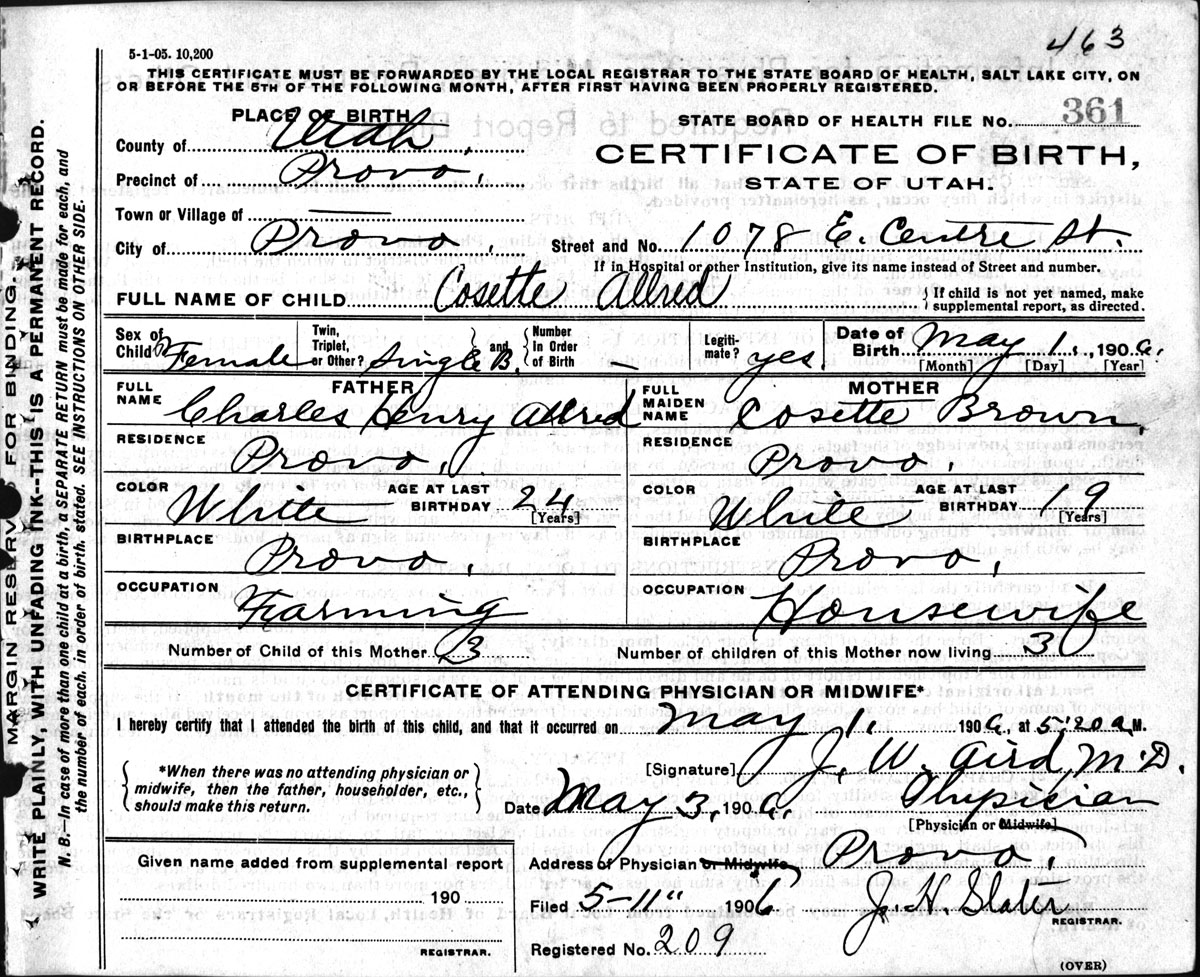 463
5-1-05. 10,200
THIS CERTIFICATE MUST BE FORWARDED BY THE LOCAL REGISTRAR TO THE STATE BOARD OF HEALTH, SALT LAKE CITY, ON
OR BEFORE THE 5TH OF THE FOLLOWING MONTH, AFTER FIRST HAVING BEEN PROPERLY REGISTERED.
PLACE OF BIRTH
STATE BOARD OF HEALTH FILE NO. 361
County of Utah.
CERTIFICATE OF BIRTH,
Precinct of Provo.
STATE OF UTAH.
Town or Village of
City of Provo Street and No. 1078 E. Centre St.
If in Hospital or other Institution, give its name instead of Street and number.
FULL NAME OF CHILD Cosette Allred { If child is not yet named, make supplemental report, as directed.
Sex of Child Female Twin, Triplet, or Other? Single B. } and { Number In Order of Birth — Legiti-mate? yes. Date of Birth May 1., 1906.
[Month] [Day] [Year]
FATHER MOTHER
FULL NAME Charles Henry Allred FULL MAIDEN NAME Cosette Brown.
RESIDENCE Provo. RESIDENCE Provo.
COLOR White AGE AT LAST BIRTHDAY 24 [Years] COLOR White AGE AT LAST BIRTHDAY 19 [Years]
BIRTHPLACE Provo. BIRTHPLACE Provo.
OCCUPATION Farming OCCUPATION Housewife
Number of Child of this Mother 3 Number of children of this Mother now living 3
CERTIFICATE OF ATTENDING PHYSICIAN OR MIDWIFE*
I hereby certify that I attended the birth of this child, and that it occurred on May 1. 1906, at 5:20 a M.
{ *When there was no attending physician or
midwife, then the father, householder, etc.,
should make this return. }
[Signature] J. W. Aird M.D.
Date May 3, 1906 Physician
[Physician or Midwife]
Given name added from supplemental report
190
REGISTRAR.
Address of Physician or Midwife Provo.
Filed 5-11" 1906 J. N. Slater
REGISTRAR.
Registered No. 209
(OVER)
MARGIN RESERVED FOR BINDING.
WRITE PLAINLY, WITH UNFADING INK--THIS IS A PERMANENT RECORD.
N. B.—In case of more than one child at a birth, a SEPARATE RETURN must be made for each, and
the number of each, in order of birth, stated. SEE INSTRUCTIONS ON OTHER SIDE.